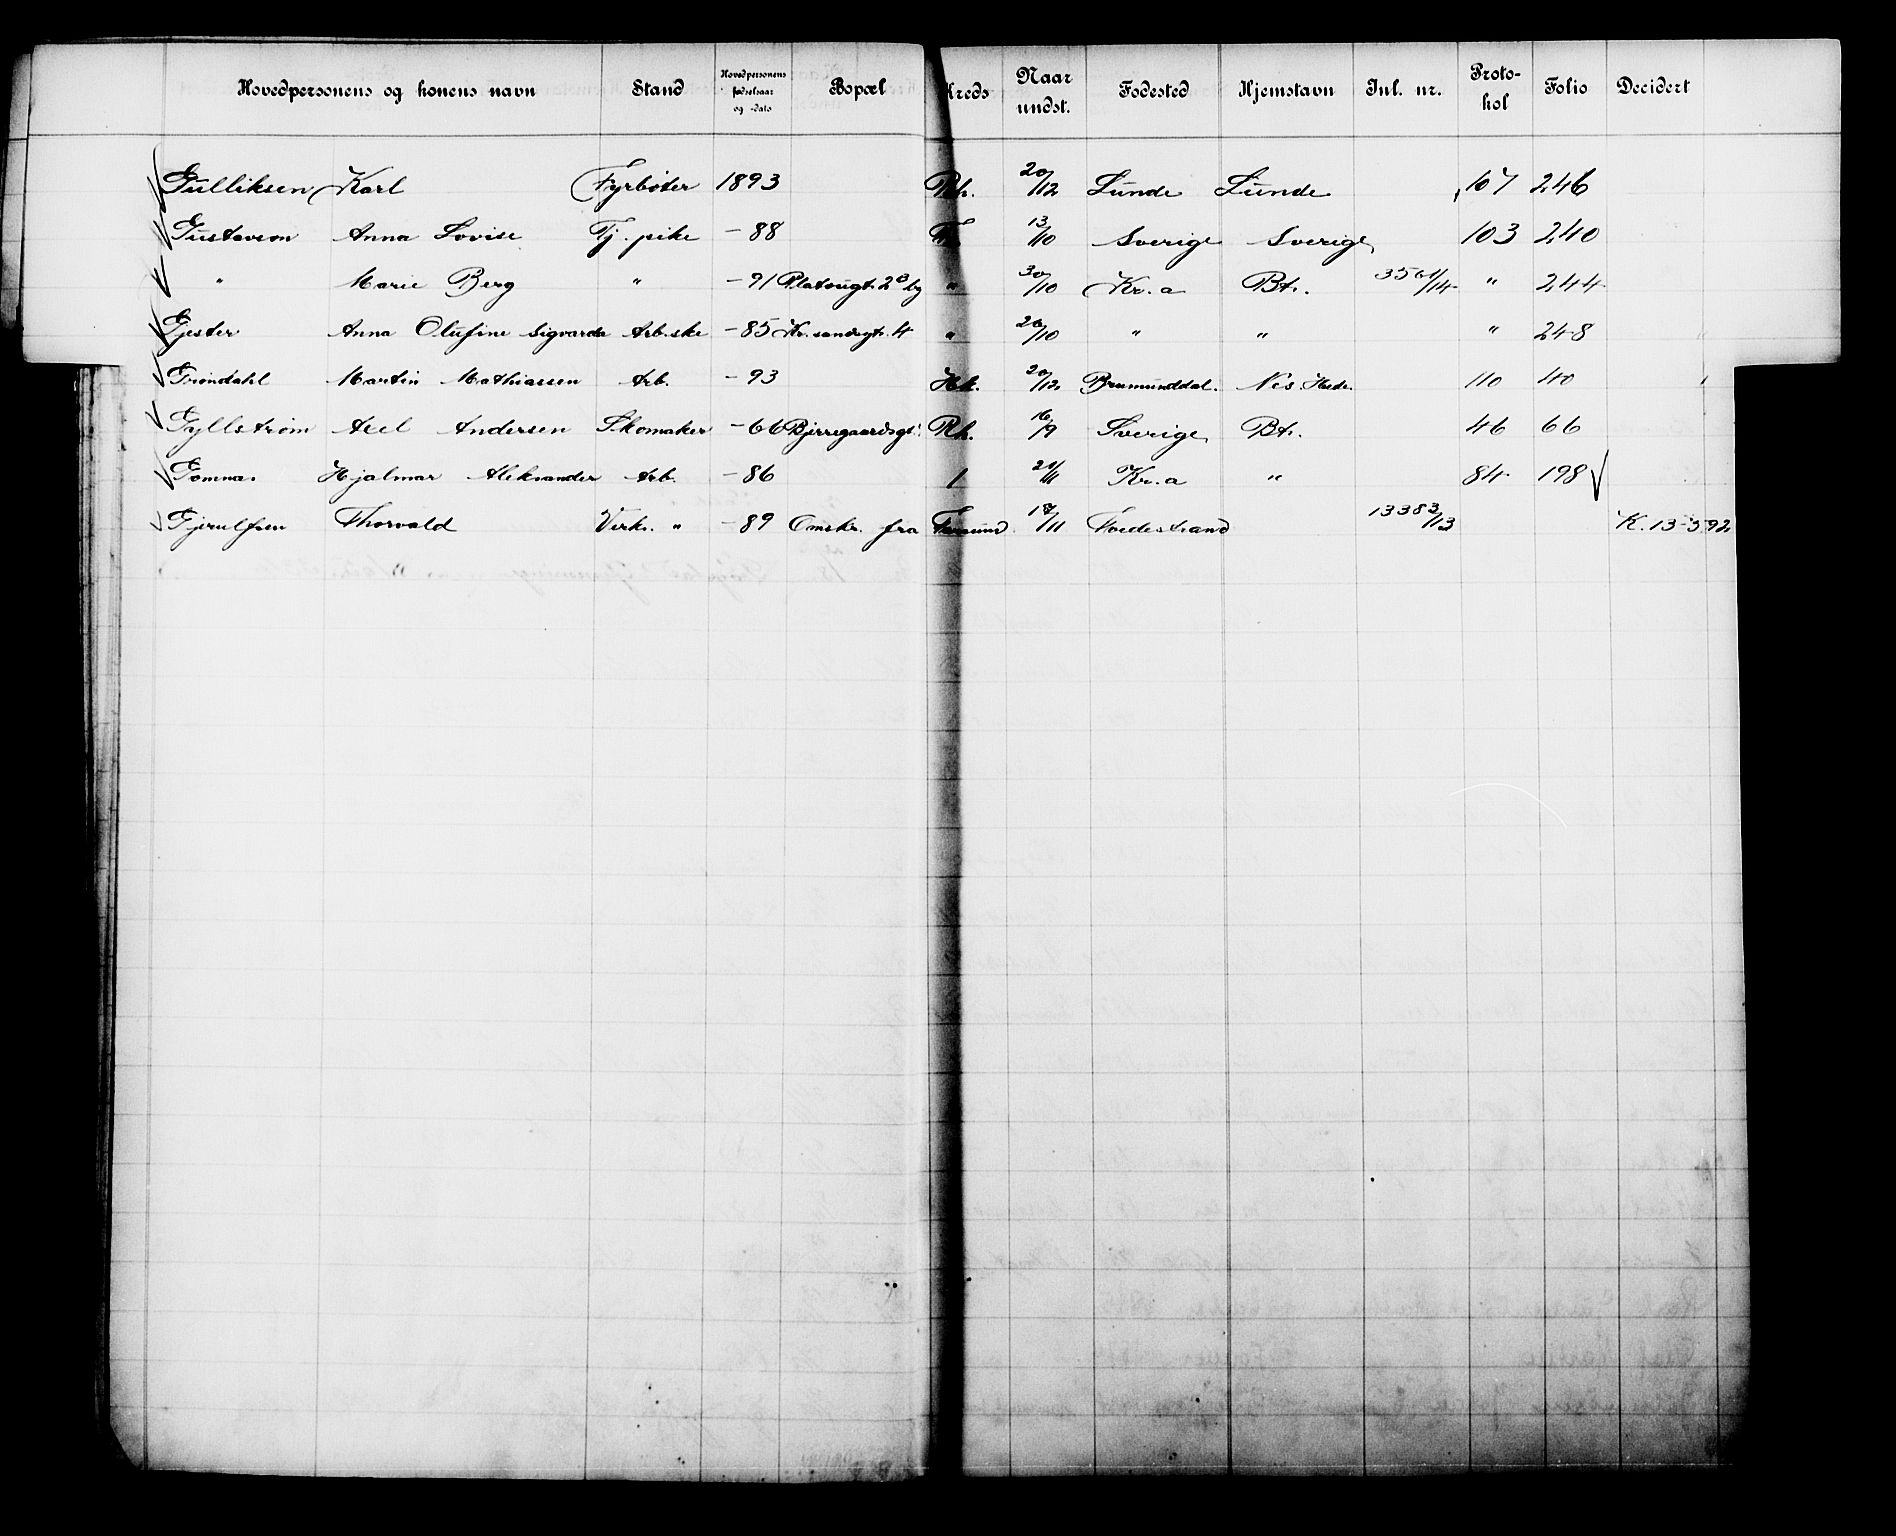 Hovedpersonens og konens navn Stand Hovedpersonens fødselsaar og -dato Bopæl Kreds Naar undst. Fødested Hjemstavn Jnl. nr. Proto-kol Folio Decidert
Gulliksen Karl Fyrbøter 1893 Rh. 20/12 Lunde Lunde 107 246
Gustavson Anna Lovise Tj. pike -88 13/10 Sverige Sverige 103 240
" Marie Berg " -91 Platougt. 2 " 30/10 Kr.a Bt. 3561/14 " 244
Gjester Anna Olufine Sigvarda Arb.ske -85 Kr.sandsgt. 4 " 20/10 " " " 248
Grøndahl Martin Mathiassen Arb. -93 Hk. 20/12 Brumunddal. Nes. Hedm. 110 40
Gyllstrøm Axel Andersen Skomaker -66 Bjerregaardsgt. Rh. 16/9 Sverige Bt. 46 66
Gomnas Hjalmar Aleksander Arb. -86 1 21/11 Kr.a " 84 198
Gjerulfsen Thorvald Verks. " -89 Omskr. fra 17/11 Tvedestrand 13383/13 K. 13-5 92